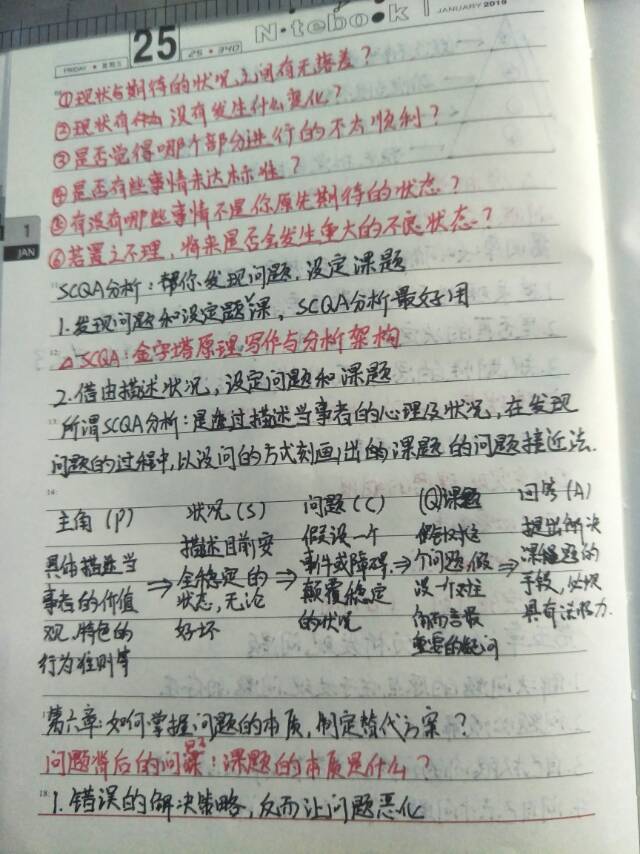 FRIDAY 星期五 25 25·340 N·tebook JANUARY 2019
1
JAN
①现状与期待的状况之间有无落差？
②现状有什么没有发生什么变化？
③是否觉得哪个部分进行的不太顺利？
④是否有些事情未达标准？
⑤有没有哪些事情不是你原先期待的状态？
⑥若置之不理，将来是否会发生重大的不良状态？
SCQA分析：帮你发现问题，设定课题
1.发现问题和设定题课，SCQA分析最好用
△SCQA：金字塔原理写作与分析架构
2.借由描述状况，设定问题和课题
所谓SCQA分析：是透过描述当事者的心理及状况，在发现
问题的过程中，以设问的方式刻画出的课题的问题接近法.
主角（P） 状况（S） 问题（C） （Q）课题 回答（A）
具体描述当 描述目前安 假设一个 假设对这 提出解决
事者的价值 ⇒ 全稳定的 ⇒ 事件或障碍， ⇒ 个问题，假 ⇒ 课题的
观、特色的 状态，无论 颠覆稳定 设一个对 手段，必须
行为准则等 好坏 的状况 而言最 具有说服力.
重要的疑问
第六章：如何掌握问题的本质，制定替代方案？
问题背后的问题：课题的本质是什么？
1.错误的解决策略，反而让问题恶化